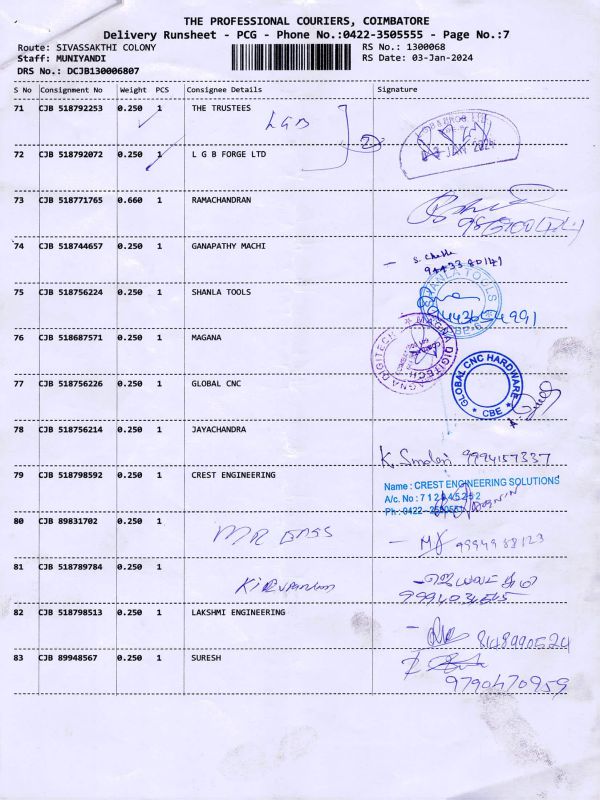 THE PROFESSIONAL COURIERS, COIMBATORE
Delivery Runsheet - PCG - Phone No.:0422-3505555 - Page No.:7
Route: SIVASSAKTHI COLONY RS No.: 1300068
Staff: MUNIYANDI RS Date: 03-Jan-2024
DRS No.: DCJB130006807
S No Consignment No Weight PCS Consignee Details Signature
71 CJB 518792253 0.250 1 THE TRUSTEES
LGB 2
72 CJB 518792072 0.250 1 L G B FORGE LTD
JAN 2024
73 CJB 518771765 0.660 1 RAMACHANDRAN
74 CJB 518744657 0.250 1 GANAPATHY MACHI
75 CJB 518756224 0.250 1 SHANLA TOOLS
SHANLA TOOLS
76 CJB 518687571 0.250 1 MAGANA
MAGNA DIGITECH
77 CJB 518756226 0.250 1 GLOBAL CNC
GLOBAL CNC HARDWARE
CBE
78 CJB 518756214 0.250 1 JAYACHANDRA
9994157337
79 CJB 518798592 0.250 1 CREST ENGINEERING
Name : CREST ENGINEERING SOLUTIONS
A/c. No :
Ph : 0422
80 CJB 89831702 0.250 1
MR
81 CJB 518789784 0.250 1
82 CJB 518798513 0.250 1 LAKSHMI ENGINEERING
8148990524
83 CJB 89948567 0.250 1 SURESH
9790470959